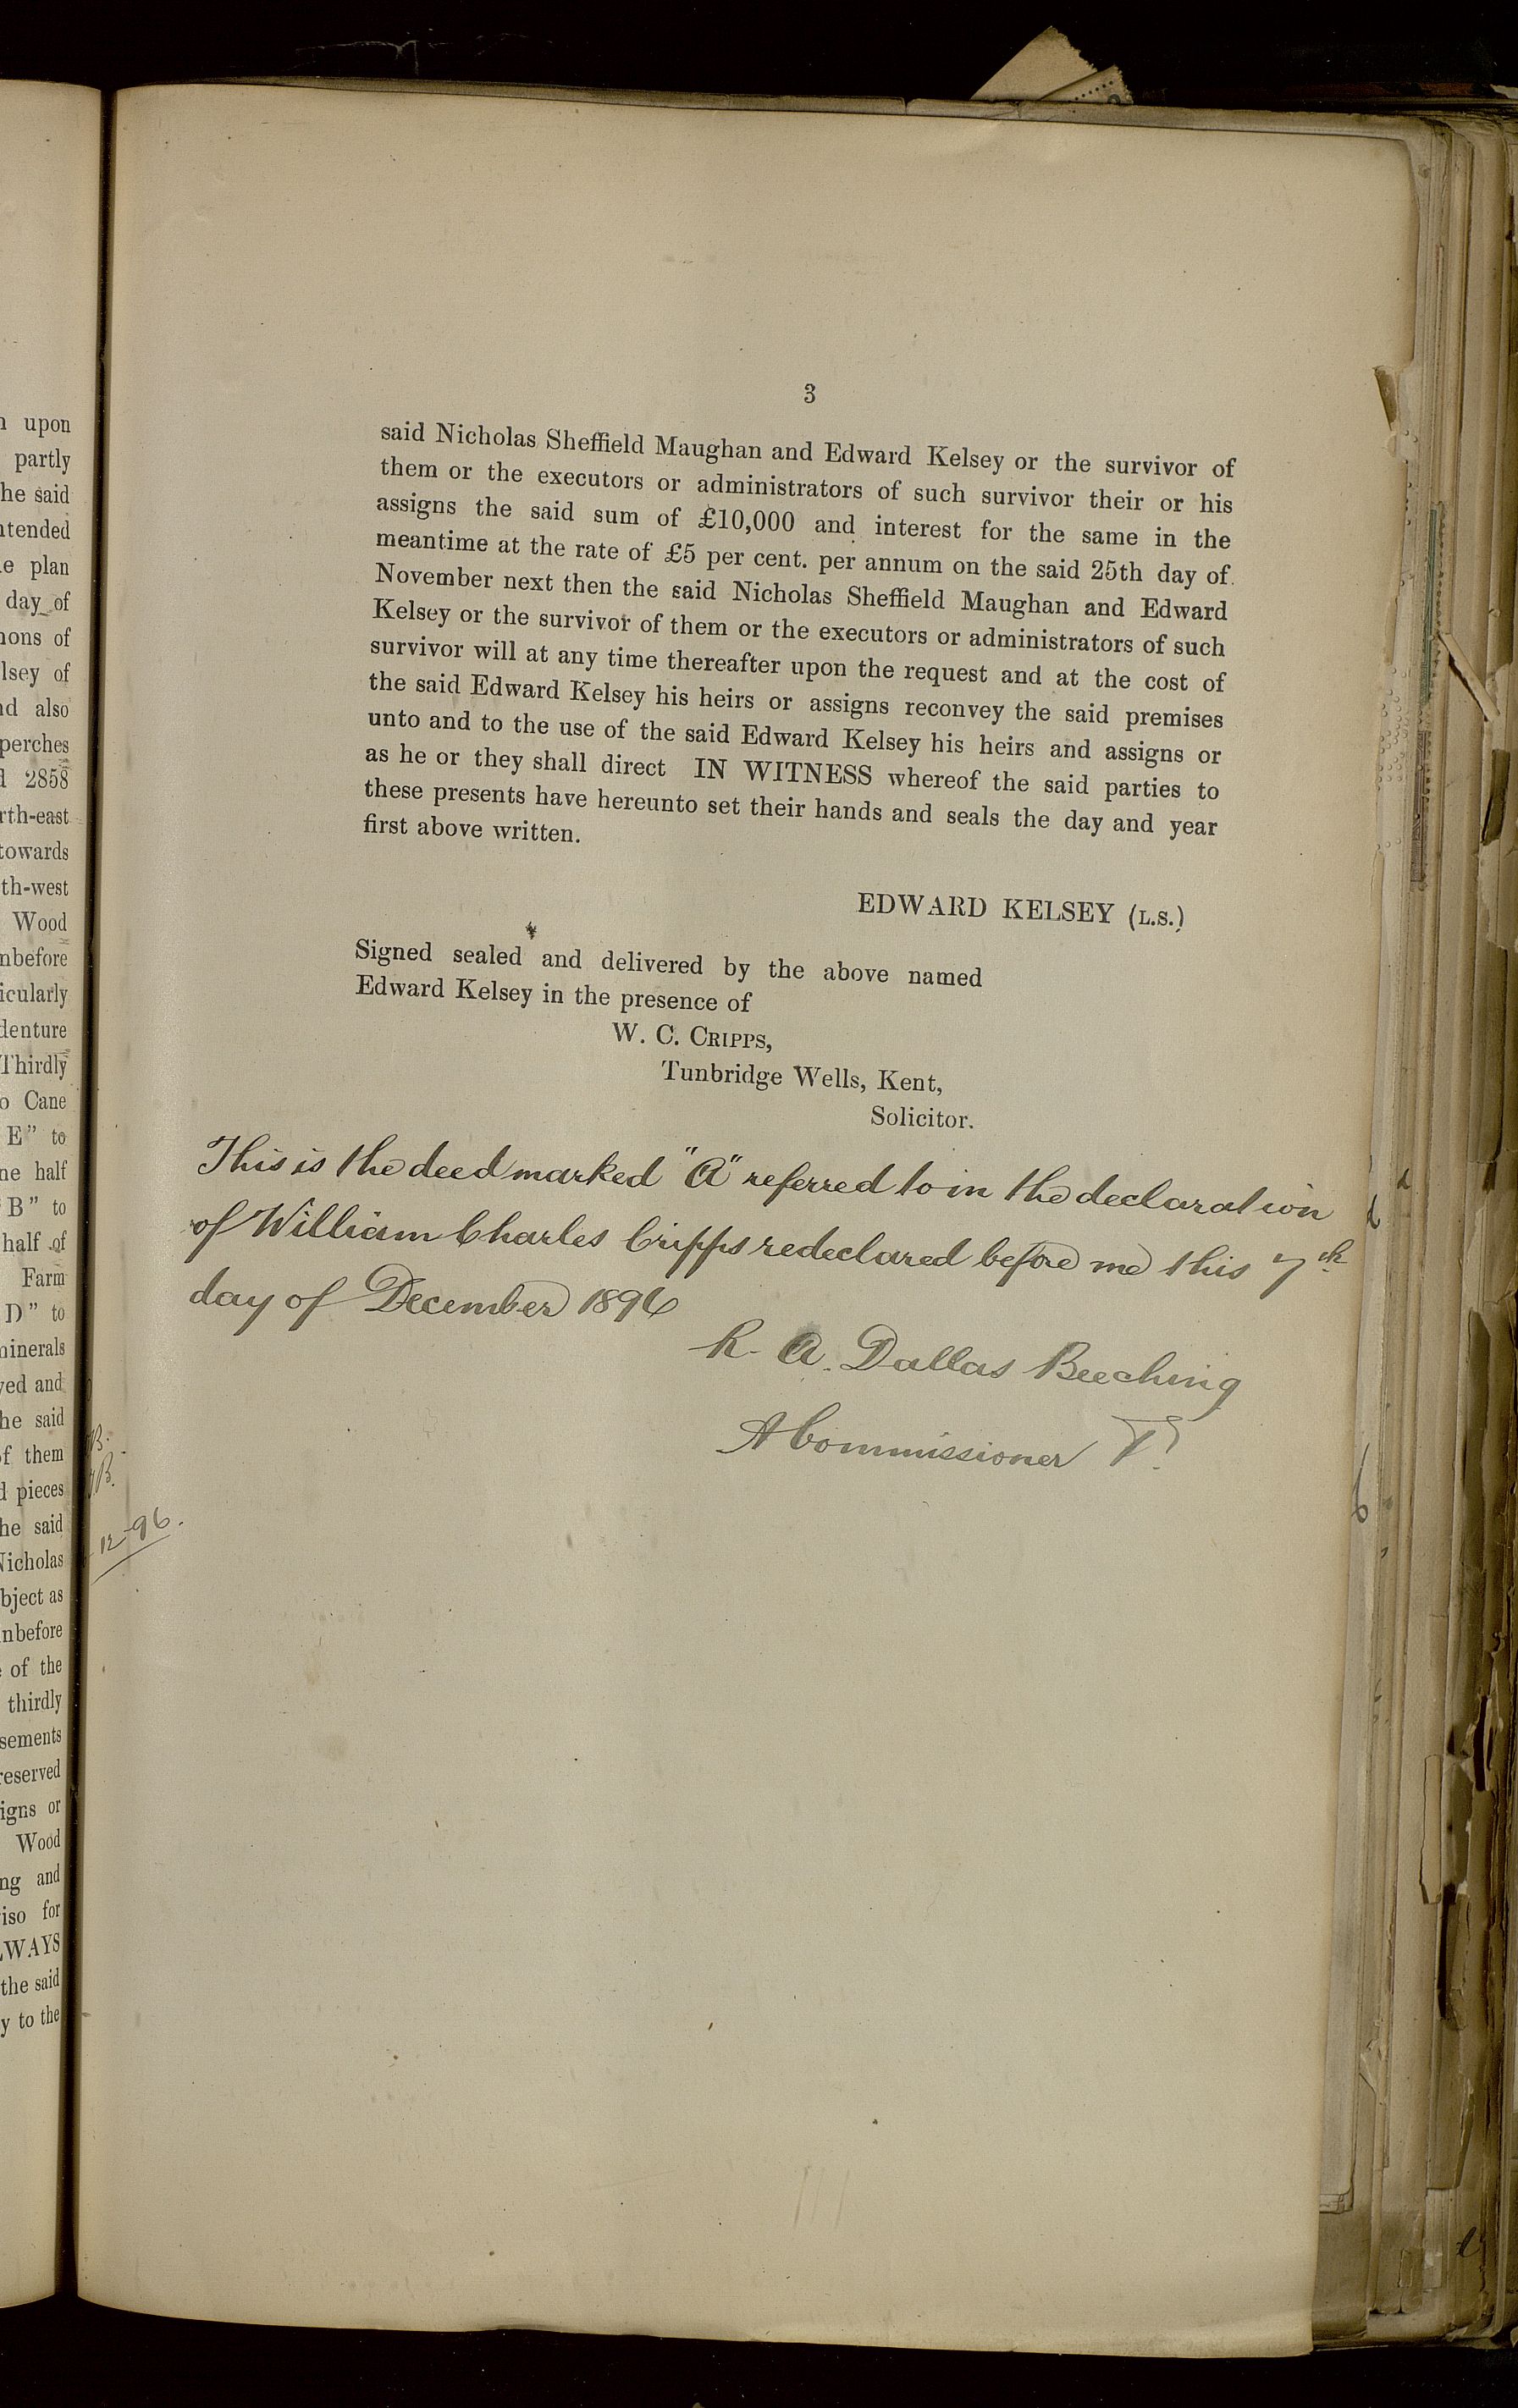 n upon
partly
he said
ntended
e plan
day of
nons of
lsey of
nd also
perches
d 2858
rth-east
towards
th-west
Wood
nbefore
icularly
denture
Thirdly
o Cane
E” to
ne half
B” to
half of
Farm
D” to
minerals
yed and
he said
of them
d pieces
he said
Nicholas
bject as
nbefore
of the
thirdly
sements
reserved
igns or
Wood
ng and
iso for
LWAYS
the said
y to the
B.
B.
12-96.
3
said Nicholas Sheffield Maughan and Edward Kelsey or the survivor of
them or the executors or administrators of such survivor their or his
assigns the said sum of £10,000 and interest for the same in the
meantime at the rate of £5 per cent. per annum on the said 25th day of
November next then the said Nicholas Sheffield Maughan and Edward
Kelsey or the survivor of them or the executors or administrators of such
survivor will at any time thereafter upon the request and at the cost of
the said Edward Kelsey his heirs or assigns reconvey the said premises
unto and to the use of the said Edward Kelsey his heirs and assigns or
as he or they shall direct IN WITNESS whereof the said parties to
these presents have hereunto set their hands and seals the day and year
first above written.
EDWARD KELSEY (L.S.)
Signed sealed and delivered by the above named
Edward Kelsey in the presence of
W. C. CRIPPS,
Tunbridge Wells, Kent,
Solicitor.
This is the deed marked "A" referred to in the declaration
of William Charles Cripps redeclared before me this 7th
day of December 1896
R. A. Dallas Beeching
A Commissioner